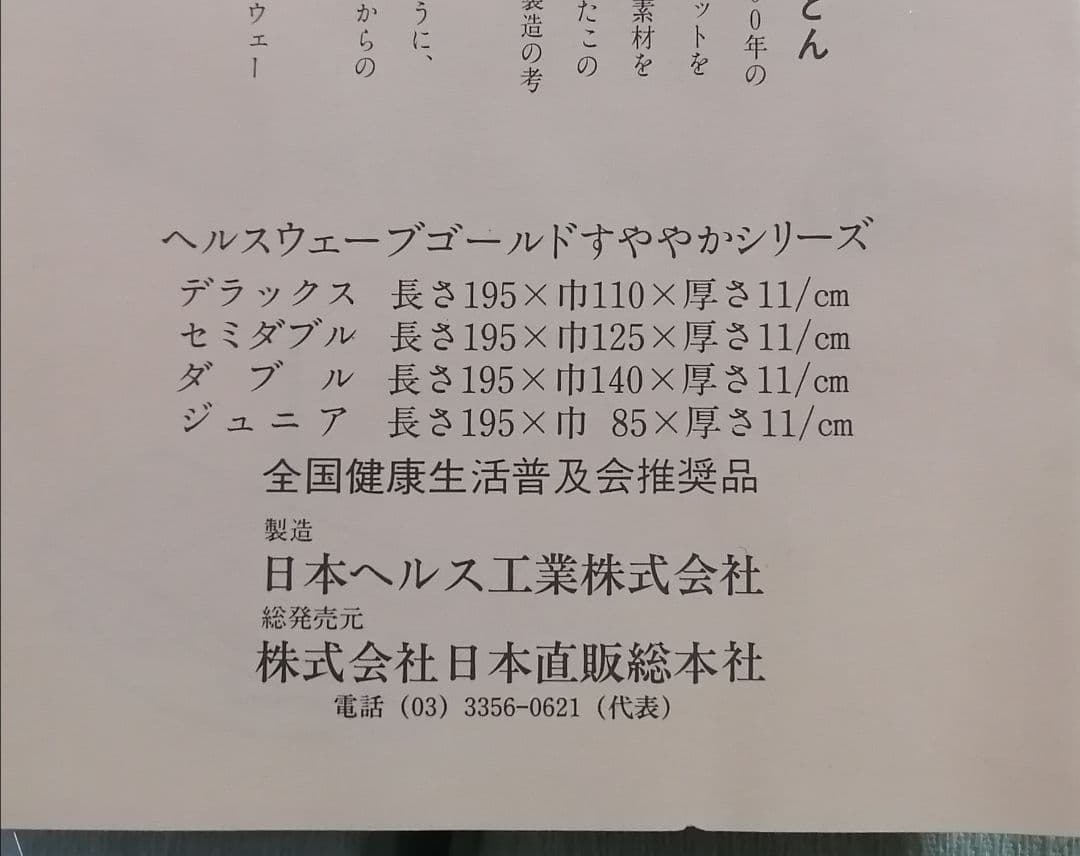 どん
00年の
ットを
素材を
たこの
製造の考
うに、
からの
ウェー
ヘルスウェーブゴールドすややかシリーズ
デラックス 長さ195×巾110×厚さ11/cm
セミダブル 長さ195×巾125×厚さ11/cm
ダブル 長さ195×巾140×厚さ11/cm
ジュニア 長さ195×巾 85×厚さ11/cm
全国健康生活普及会推奨品
製造
日本ヘルス工業株式会社
総発売元
株式会社日本直販総本社
電話(03)3356-0621(代表)